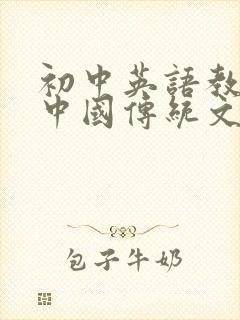 初中英語教
中國傳統文
包子牛奶